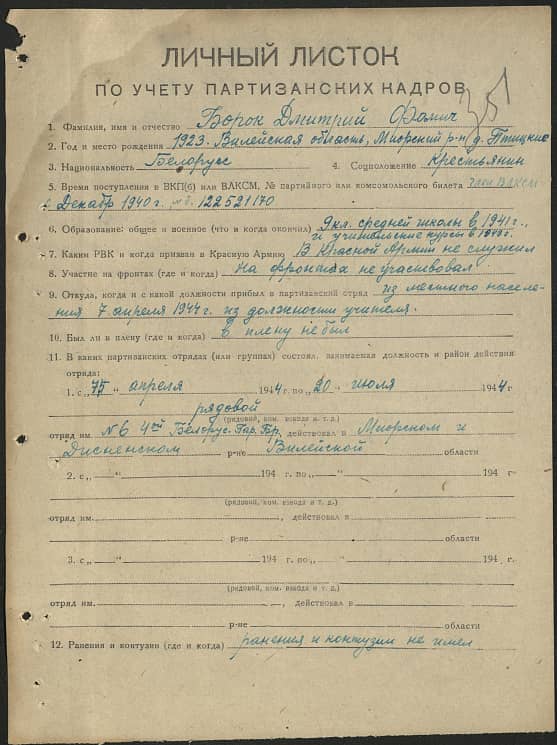 ЛИЧНЫЙ ЛИСТОК
ПО УЧЕТУ ПАРТИЗАНСКИХ КАДРОВ
1. Фамилия, имя и отчество Борок Дмитрий Фомич
2. Год и место рождения 1923. Вилейская область, Миорский р-н д. Птицкие
3. Национальность Белорусс 4. Соцположение крестьянин
5. Время поступления в ВКП(б) или ВЛКСМ, № партийного или комсомольского билета член ВЛКСМ
с Декабр 1940 г. 122521170
6. Образование: общее и военное (что и когда окончил) 9 кл. средней школы в 1941 г.,
и учительские курсы в
7. Каким РВК и когда призван в Красную Армию В Красной Армии не служил
8. Участие на фронтах (где и когда) на фронтах не участвовал
9. Откуда, когда и с какой должности прибыл в партизанский отряд из местного населе-
ния 7 апреля 1944 г. из должности учителя.
10. Был ли в плену (где и когда) в плену не был
11. В каких партизанских отрядах (или группах) состоял, занимаемая должность и район действия
отряда:
1. с „ “ апреля 1944 г. по „20“ июля 1944 г
рядовой
(рядовой, ком. взвода и т. д.)
отряд им № 6 4ой Белорус. Пар. Бр., действовал в Миорском и
Дисненском р-не Вилейской области
2. с „—“ 194 г. по „—“ 194 г
(рядовой, ком. взвода и т. д.)
отряд им. , действовал в
р-не области
3. с „—“ 194 г. по „—“ 194 г.
(рядовой, ком. взвода и т. д.)
отряд им. , действовал в
р-не области
12. Ранения и контузии (где и когда) ранения и контузии не имел